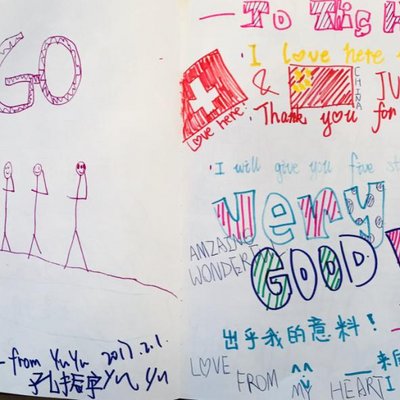 GO
- from YuYu 2017.2.1.
Yu Yu
- To This H
I love here
& CHINA JU
love here!
Thank you for
I will give you five st
Very
AMZAING
WONDERE
GOOD
出乎我的意料!
LOVE
FROM MY HEART